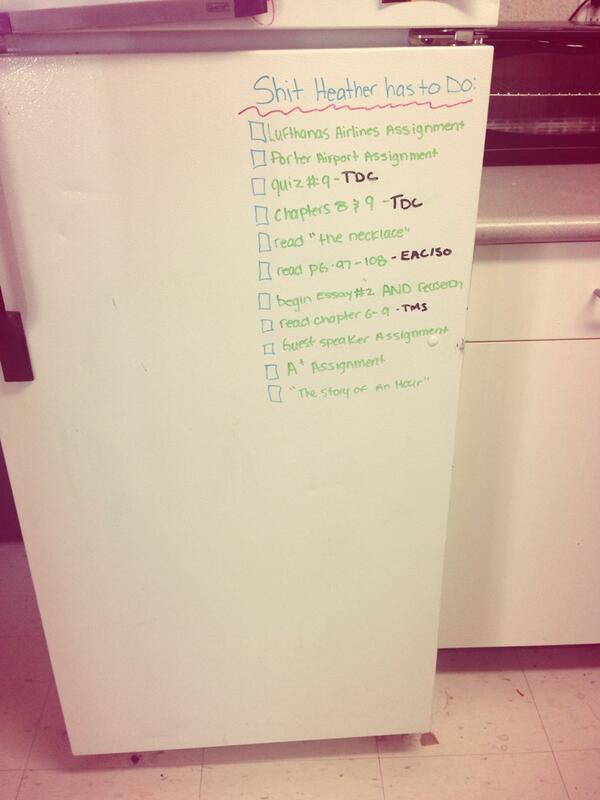 Shit Heather has to Do:
Lufthanas Airlines Assignment
Porter Airport Assignment
quiz #9 - TDC
Chapters 8 & 9 - TDC
read "the necklace"
read pg. 97-108 - EAC150
begin Essay #2 AND research
read chapter 6-9 - TMS
Guest speaker Assignment
A+ Assignment
"The Story of An Hour"